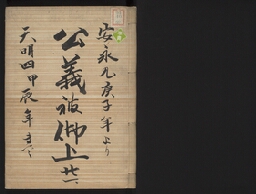 安永九庚子年より
公義被仰上
天明四甲辰年まで